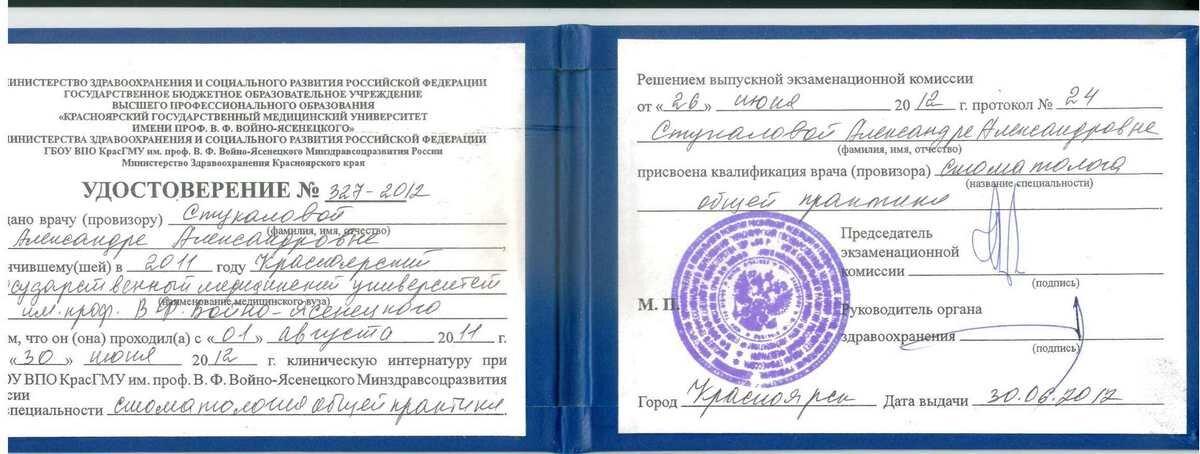 МИНИСТЕРСТВО ЗДРАВООХРАНЕНИЯ И СОЦИАЛЬНОГО РАЗВИТИЯ РОССИЙСКОЙ ФЕДЕРАЦИИ
ГОСУДАРСТВЕННОЕ БЮДЖЕТНОЕ ОБРАЗОВАТЕЛЬНОЕ УЧРЕЖДЕНИЕ
ВЫСШЕГО ПРОФЕССИОНАЛЬНОГО ОБРАЗОВАНИЯ
«КРАСНОЯРСКИЙ ГОСУДАРСТВЕННЫЙ МЕДИЦИНСКИЙ УНИВЕРСИТЕТ
ИМЕНИ ПРОФ. В. Ф. ВОЙНО-ЯСЕНЕЦКОГО»
МИНИСТЕРСТВА ЗДРАВООХРАНЕНИЯ И СОЦИАЛЬНОГО РАЗВИТИЯ РОССИЙСКОЙ ФЕДЕРАЦИИ
ГБОУ ВПО КрасГМУ им. проф. В. Ф. Войно-Ясенецкого Минздравсоцразвития России
Министерство Здравоохранения Красноярского края
УДОСТОВЕРЕНИЕ № 327-2012
дано врачу (провизору) Стукаловой
(фамилия, имя, отчество)
Александре Александровне,
нчившему(шей) в 2011 году Красноярский
осударственный медицинский университет
(наименование медицинского вуза)
им. проф. В. Ф. Войно-Ясенецкого
м, что он (она) проходил(а) с «01» августа 2011 г.
«30» июня 2012 г. клиническую интернатуру при
ОУ ВПО КрасГМУ им. проф. В. Ф. Войно-Ясенецкого Минздравсоцразвития
сии
специальности стоматология общей практики.
Решением выпускной экзаменационной комиссии
от «26» июня 2012 г. протокол № 24
Стукаловой Александре Александровне
(фамилия, имя, отчество)
присвоена квалификация врача (провизора) стоматолога
(название специальности)
общей практики
Председатель
экзаменационной
комиссии
(подпись)
М. П.
Руководитель органа
здравоохранения
(подпись)
Город Красноярск Дата выдачи 30.06.2012